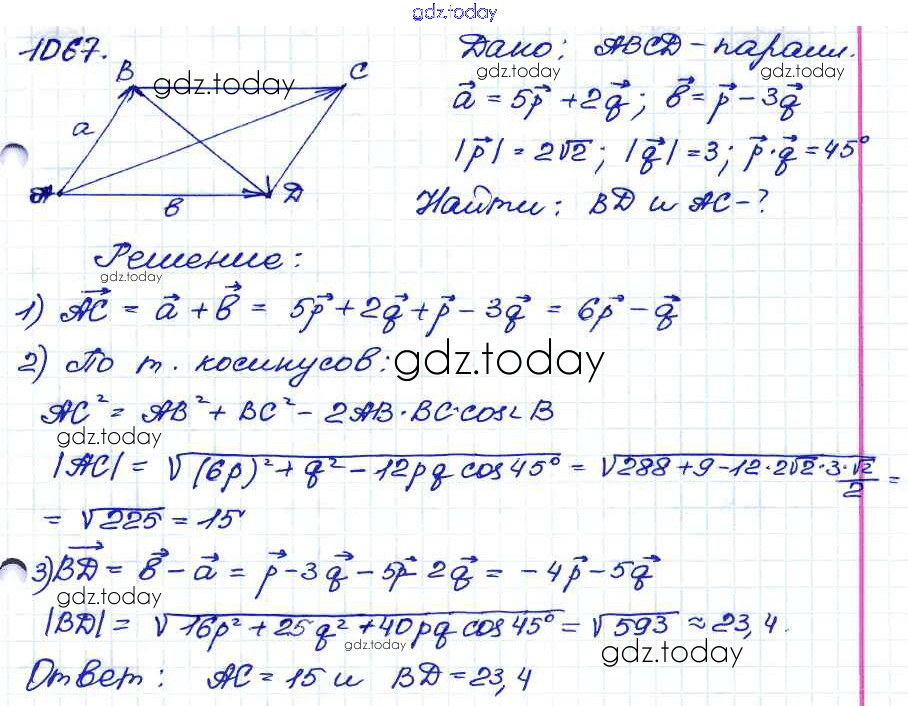 gdz.today
1067.
Дано: ABCD - парал.
B
C
gdz.today
gdz.today
a
a⃗ = 5p⃗ + 2q⃗; b⃗ = p⃗ - 3q⃗
|p⃗| = 2√2; |q⃗| = 3; p⃗·q⃗ = 45°
A
D
b
Найти: BD и AC - ?
gdz.today
Решение:
gdz.today
1) AC⃗ = a⃗ + b⃗ = 5p⃗ + 2q⃗ + p⃗ - 3q⃗ = 6p⃗ - q⃗
2) По т. косинусов: gdz.today
AC² = AB² + BC² - 2AB·BC·cos∠B
gdz.today
|AC| = √(6p)² + q² - 12pq cos45° = √288 + 9 - 12·2√2·3·√2/2 =
= √225 = 15
3) BD⃗ = b⃗ - a⃗ = p⃗ - 3q⃗ - 5p⃗ 2q⃗ = -4p⃗ - 5q⃗
gdz.today
|BD| = √16p² + 25q² + 40pq cos45° = √593 ≈ 23,4.
gdz.today
gdz.today
Ответ: AC = 15 и BD = 23,4